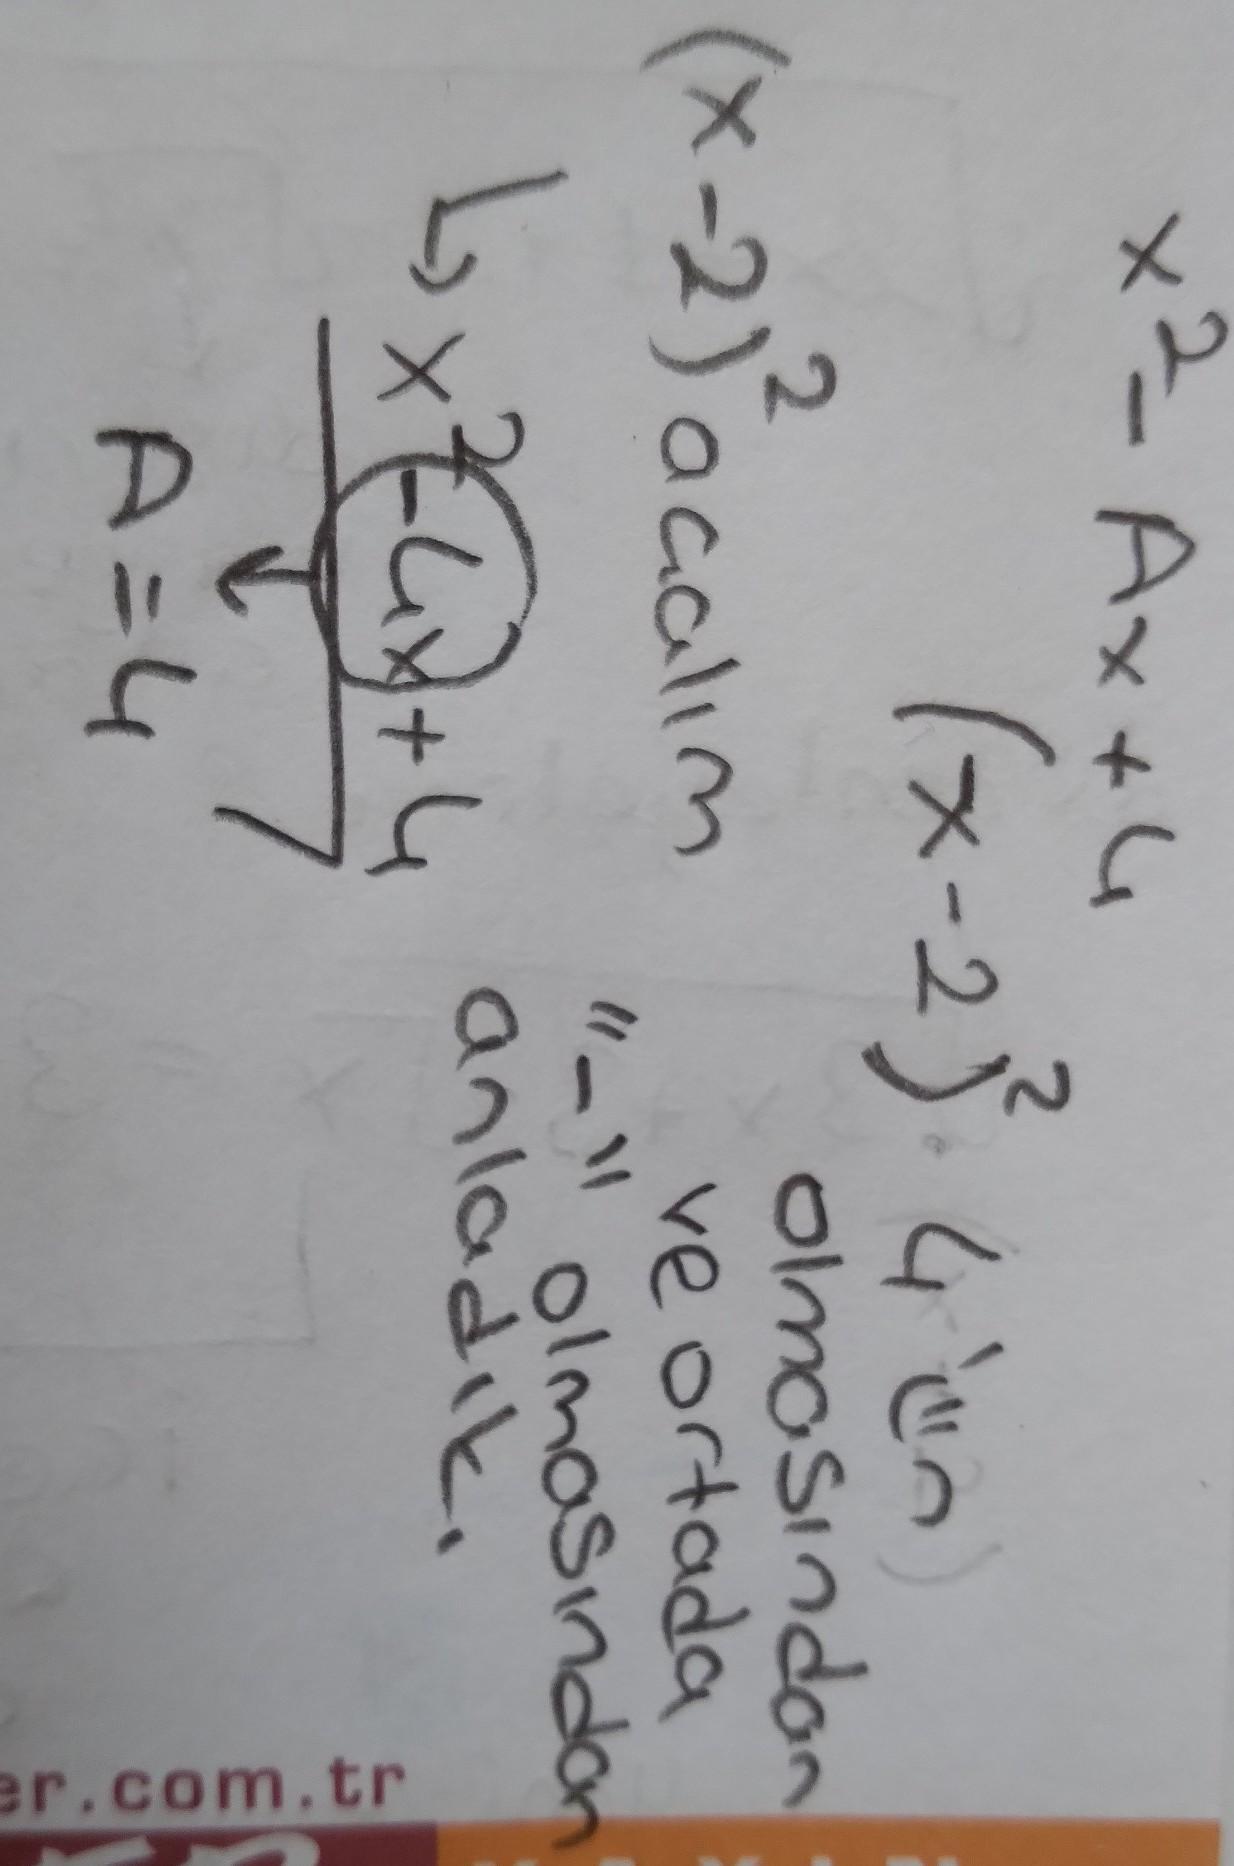 x² - Ax + 4
(x-2)² 4'ün
olmasından
(x-2)² açalım
ve ortada
"-" olmasından
anladık.
↳ x² - 4x + 4
A = 4
er.com.tr
YAYIN